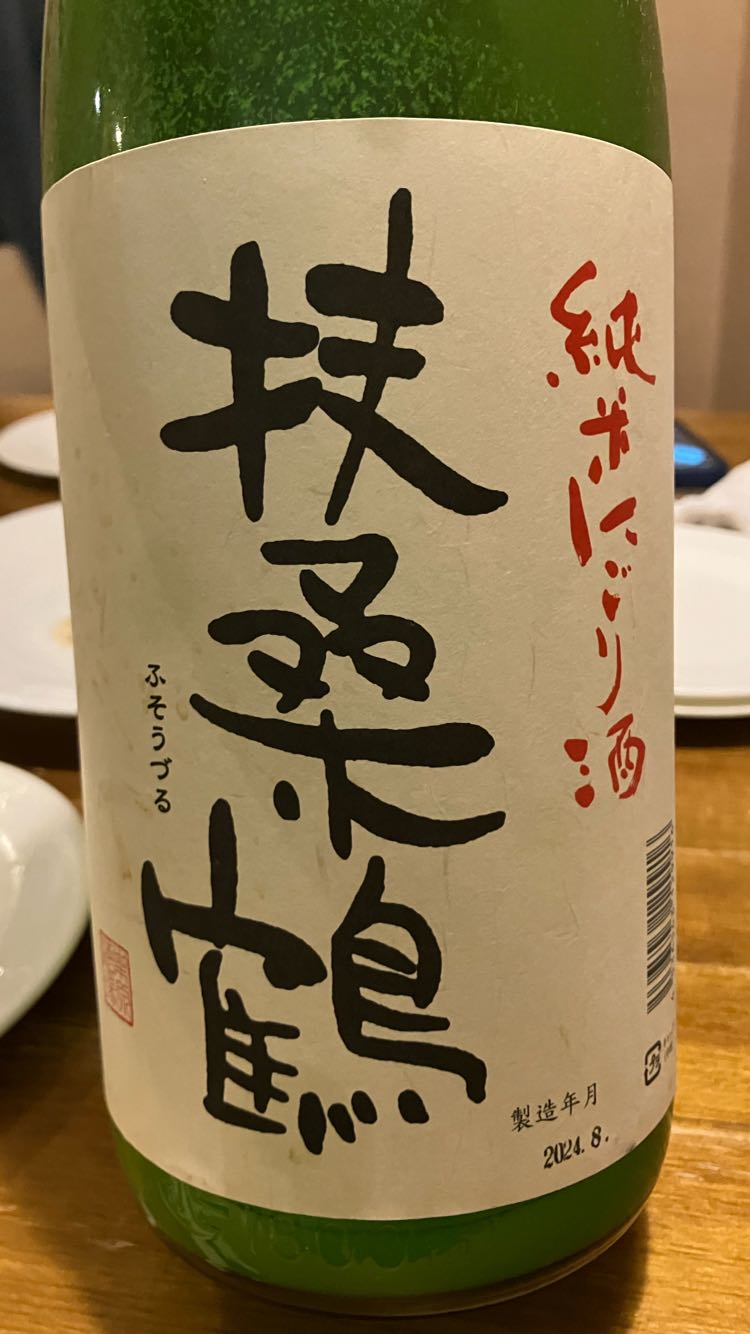 純米にごり酒
扶桑鶴
ふそうづる
製造年月
2024.8.